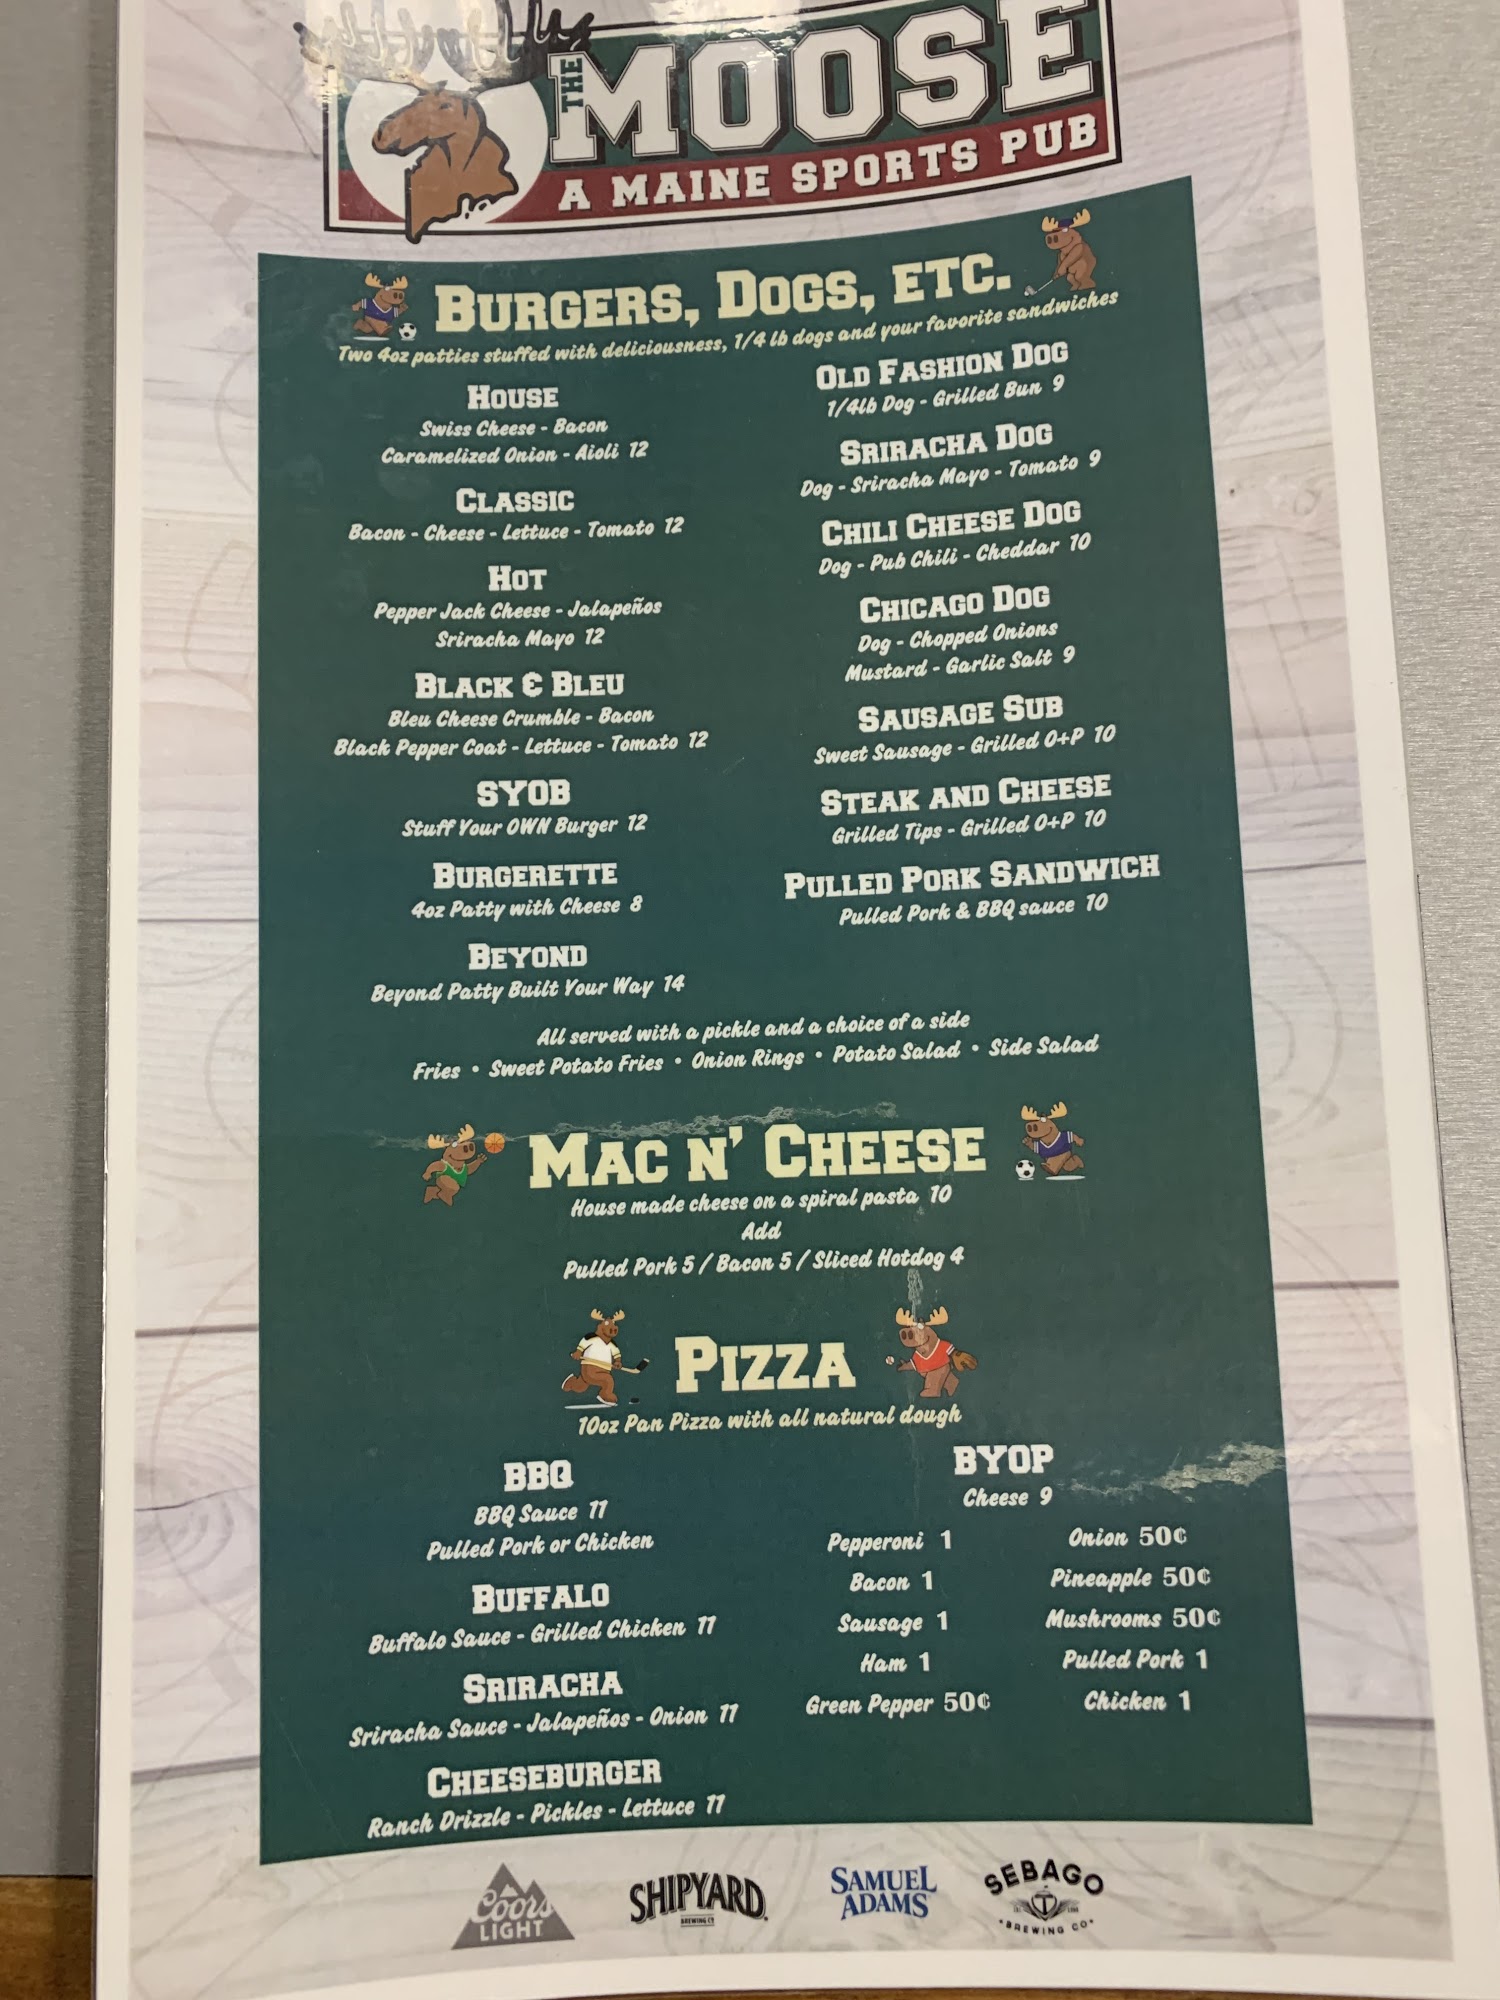 THE MOOSE
A MAINE SPORTS PUB
BURGERS, DOGS, ETC.
Two 4oz patties stuffed with deliciousness, 1/4 lb dogs and your favorite sandwiches
HOUSE
Swiss Cheese - Bacon
Caramelized Onion - Aioli 12
CLASSIC
Bacon - Cheese - Lettuce - Tomato 12
HOT
Pepper Jack Cheese - Jalapeños
Sriracha Mayo 12
BLACK & BLEU
Bleu Cheese Crumble - Bacon
Black Pepper Coat - Lettuce - Tomato 12
SYOB
Stuff Your OWN Burger 12
BURGERETTE
4oz Patty with Cheese 8
BEYOND
Beyond Patty Built Your Way 14
OLD FASHION DOG
1/4lb Dog - Grilled Bun 9
SRIRACHA DOG
Dog - Sriracha Mayo - Tomato 9
CHILI CHEESE DOG
Dog - Pub Chili - Cheddar 10
CHICAGO DOG
Dog - Chopped Onions
Mustard - Garlic Salt 9
SAUSAGE SUB
Sweet Sausage - Grilled O+P 10
STEAK AND CHEESE
Grilled Tips - Grilled O+P 10
PULLED PORK SANDWICH
Pulled Pork & BBQ sauce 10
All served with a pickle and a choice of a side
Fries • Sweet Potato Fries • Onion Rings • Potato Salad • Side Salad
MAC N' CHEESE
House made cheese on a spiral pasta 10
Add
Pulled Pork 5 / Bacon 5 / Sliced Hotdog 4
PIZZA
10oz Pan Pizza with all natural dough
BBQ
BBQ Sauce 11
Pulled Pork or Chicken
BUFFALO
Buffalo Sauce - Grilled Chicken 11
SRIRACHA
Sriracha Sauce - Jalapeños - Onion 11
CHEESEBURGER
Ranch Drizzle - Pickles - Lettuce 11
BYOP
Cheese 9
Pepperoni 1
Bacon 1
Sausage 1
Ham 1
Green Pepper 50¢
Onion 50¢
Pineapple 50¢
Mushrooms 50¢
Pulled Pork 1
Chicken 1
Coors
LIGHT
SHIPYARD
BREWING CO
SAMUEL
ADAMS
SEBAGO
BREWING CO